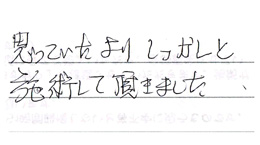 思っていたよりしっかしと
施術して頂きました、